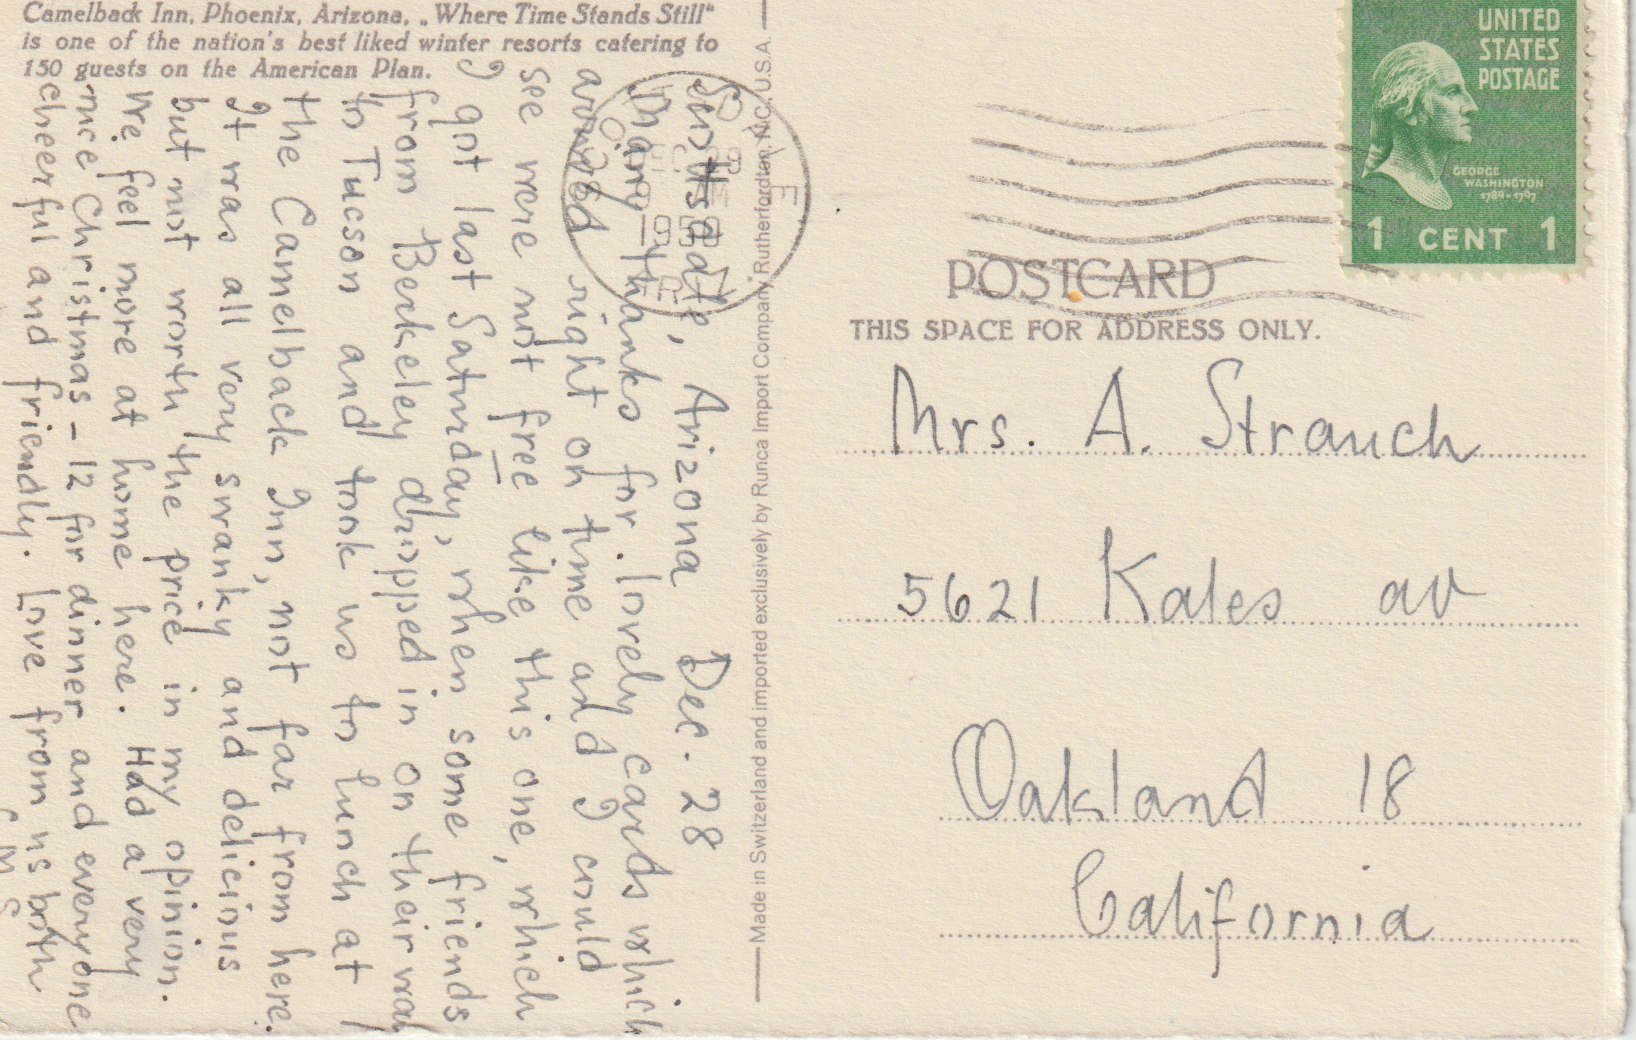 Camelback Inn, Phoenix, Arizona, „Where Time Stands Still“
is one of the nation's best liked winter resorts catering to
150 guests on the American Plan.
Scottsdale, Arizona Dec. 28
Many thanks for lovely cards which
arrived right on time and I could
see were not free like this one, which
I got last Saturday, when some friends
from Berkeley dropped in on their way
to Tucson and took us to lunch at
the Camelback Inn, not far from here.
It was all very swanky and delicious
but not worth the price in my opinion.
We feel more at home here. Had a very
nice Christmas – 12 for dinner and everyone
cheerful and friendly. Love from us both
Made in Switzerland and imported exclusively by Runca Import Company, Rutherfordton, N.C., U.S.A.
DEC 28
AM
1950
ARIZ
UNITED
STATES
POSTAGE
GEORGE
WASHINGTON
1789-1797
1 CENT 1
POSTCARD
THIS SPACE FOR ADDRESS ONLY.
Mrs. A. Strauch
5621 Kales av
Oakland 18
California